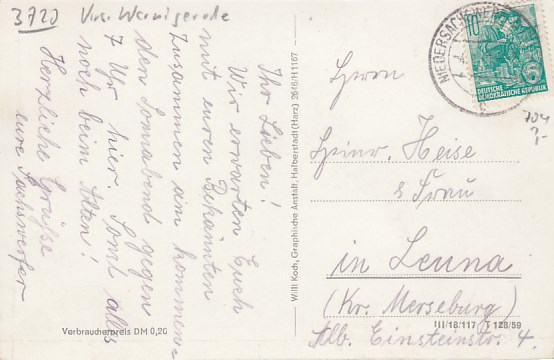 3720 Krs. Wernigerode
Ihr Lieben!
Wir erwarten Euch
mit euren Bekannten
zusammen am kommen-
den Sonnabend gegen
7 Uhr hier. Sonst alles
noch beim Alten!
Herzliche Grüße
eure Sachswerfer
Verbraucherpreis DM 0,20
Willi Koch, Graphische Anstalt, Halberstadt (Harz) 2646/H1167
NIEDERSACHSWERFEN
10
6
DEUTSCHE
DEMOKRATISCHE REPUBLIK
704
Herrn
Heinr. Heise
& Frau
in Leuna
(Kr. Merseburg)
III/18/117 T 128/59
Alb. Einsteinstr. 4.